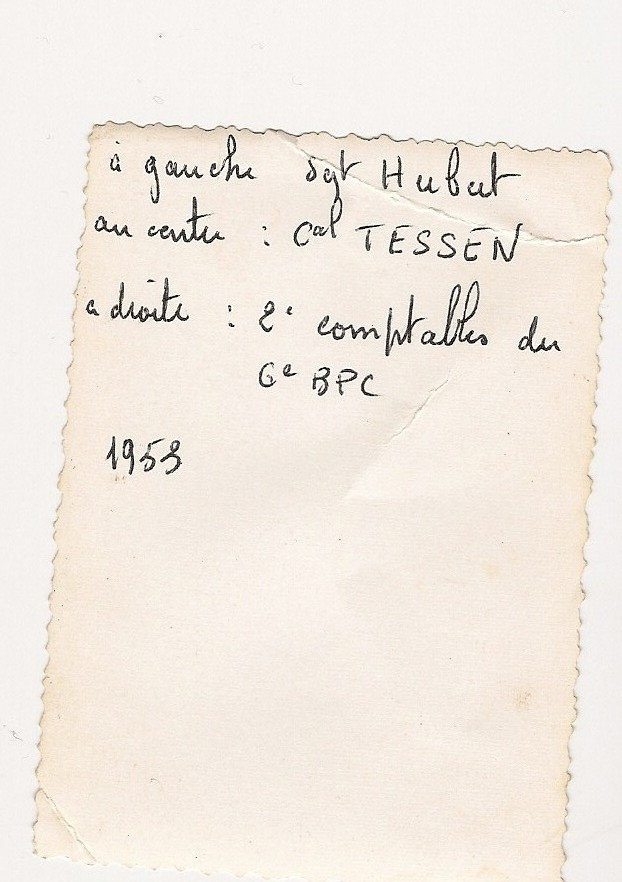 à gauche Sgt Hubert
au centre : Cal TESSEN
a droite : 2e comptables du
6e BPC
1953